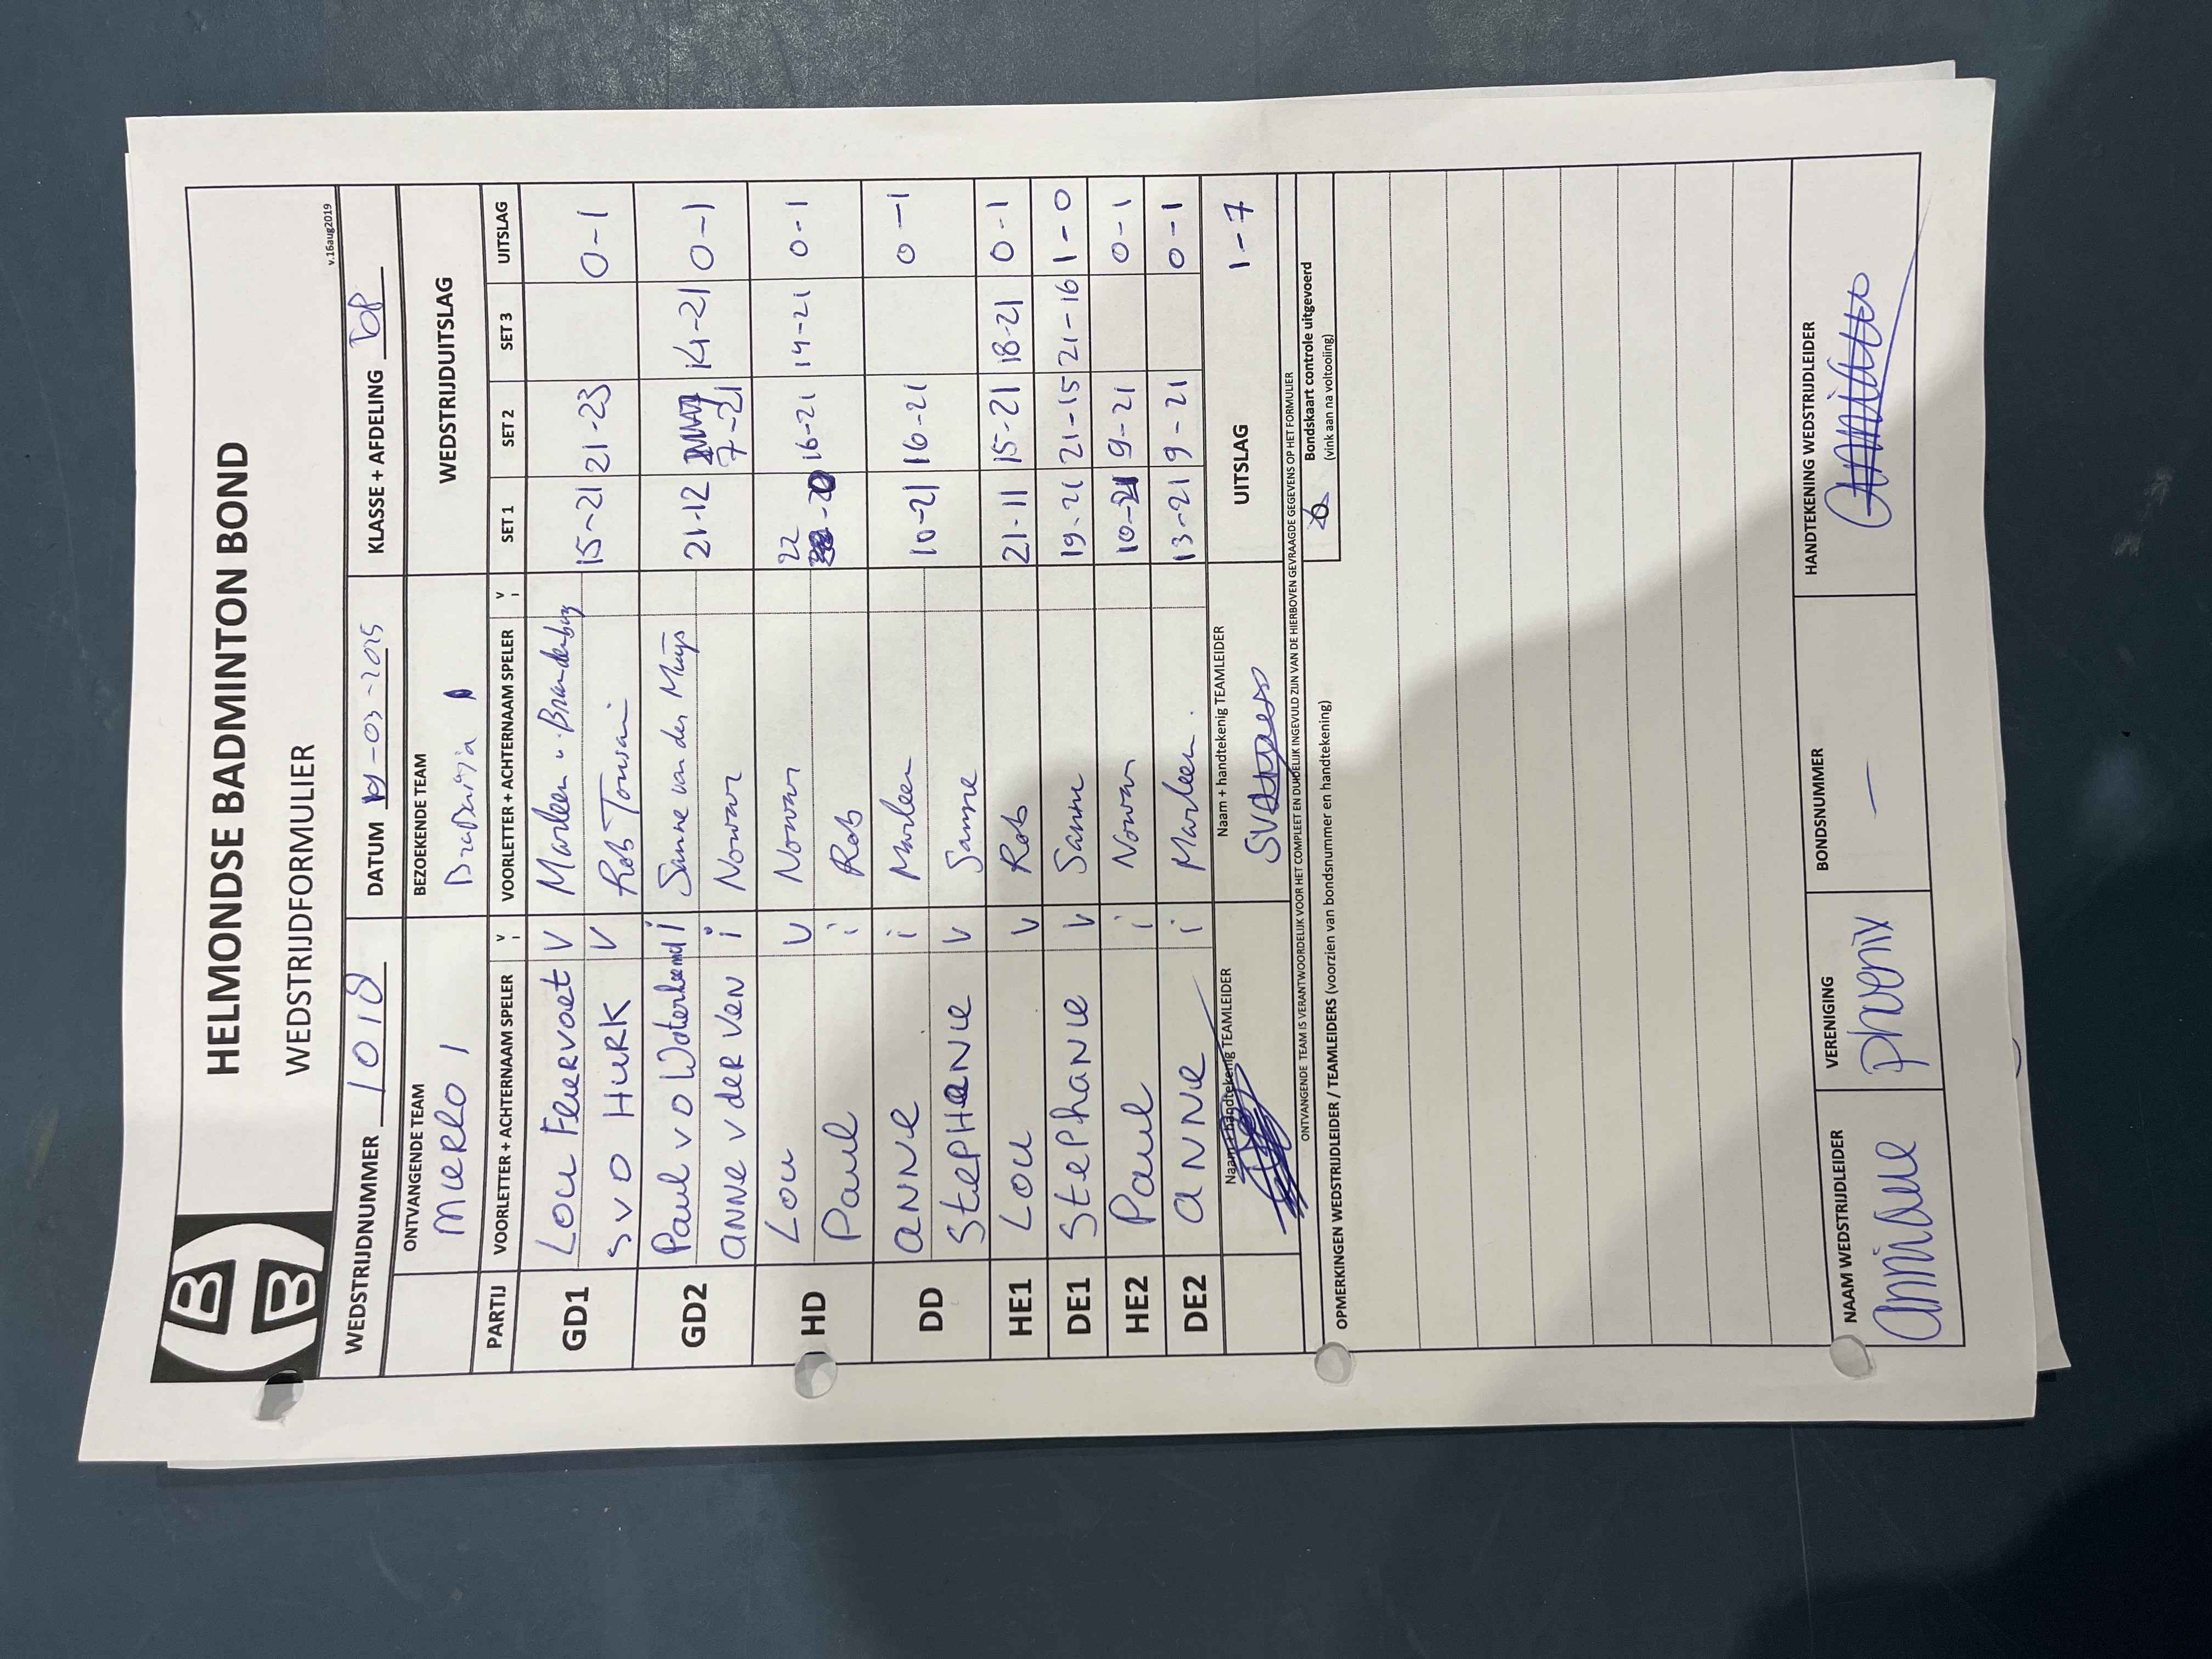 HELMONDSE BADMINTON BOND
WEDSTRIJDFORMULIER
v.16aug2019
WEDSTRIJDNUMMER 1018 DATUM -03-2025 KLASSE + AFDELING Top
ONTVANGENDE TEAM BEZOEKENDE TEAM WEDSTRIJDUITSLAG
MIERLO 1 BraDania 1
PARTIJ VOORLETTER + ACHTERNAAM SPELER V I VOORLETTER + ACHTERNAAM SPELER V I SET 1 SET 2 SET 3 UITSLAG
GD1 Lou Fleervoet V Marleen v. Brandenburg 15-21 21-23 0-1
S v D HURK V Rob Tousain
GD2 Paul v D Waterbeemd i Sanne van der Muijs 21-12 7-21 14-21 0-1
ANNE v der Ven i Nowar
HD Lou V Nowar 22-20 16-21 14-21 0-1
Paul i Rob
DD ANNE i Marleen 10-21 16-21 0-1
StePHaNIe V Sanne
HE1 Lou V Rob 21-11 15-21 18-21 0-1
DE1 StePhaNIe V Sanne 19-21 21-15 21-16 1-0
HE2 Paul i Nowar 10-21 9-21 0-1
DE2 aNNe i Marleen. 13-21 9-21 0-1
Naam + handtekenig TEAMLEIDER Naam + handtekenig TEAMLEIDER UITSLAG 1-7
ONTVANGENDE TEAM IS VERANTWOORDELIJK VOOR HET COMPLEET EN DUIDELIJK INGEVULD ZIJN VAN DE HIERBOVEN GEVRAAGDE GEGEVENS OP HET FORMULIER
Bondskaart controle uitgevoerd
(vink aan na voltooling)
OPMERKINGEN WEDSTRIJDLEIDER / TEAMLEIDERS (voorzien van bondsnummer en handtekening)
NAAM WEDSTRIJDLEIDER VERENIGING BONDSNUMMER HANDTEKENING WEDSTRIJDLEIDER
phoenix —